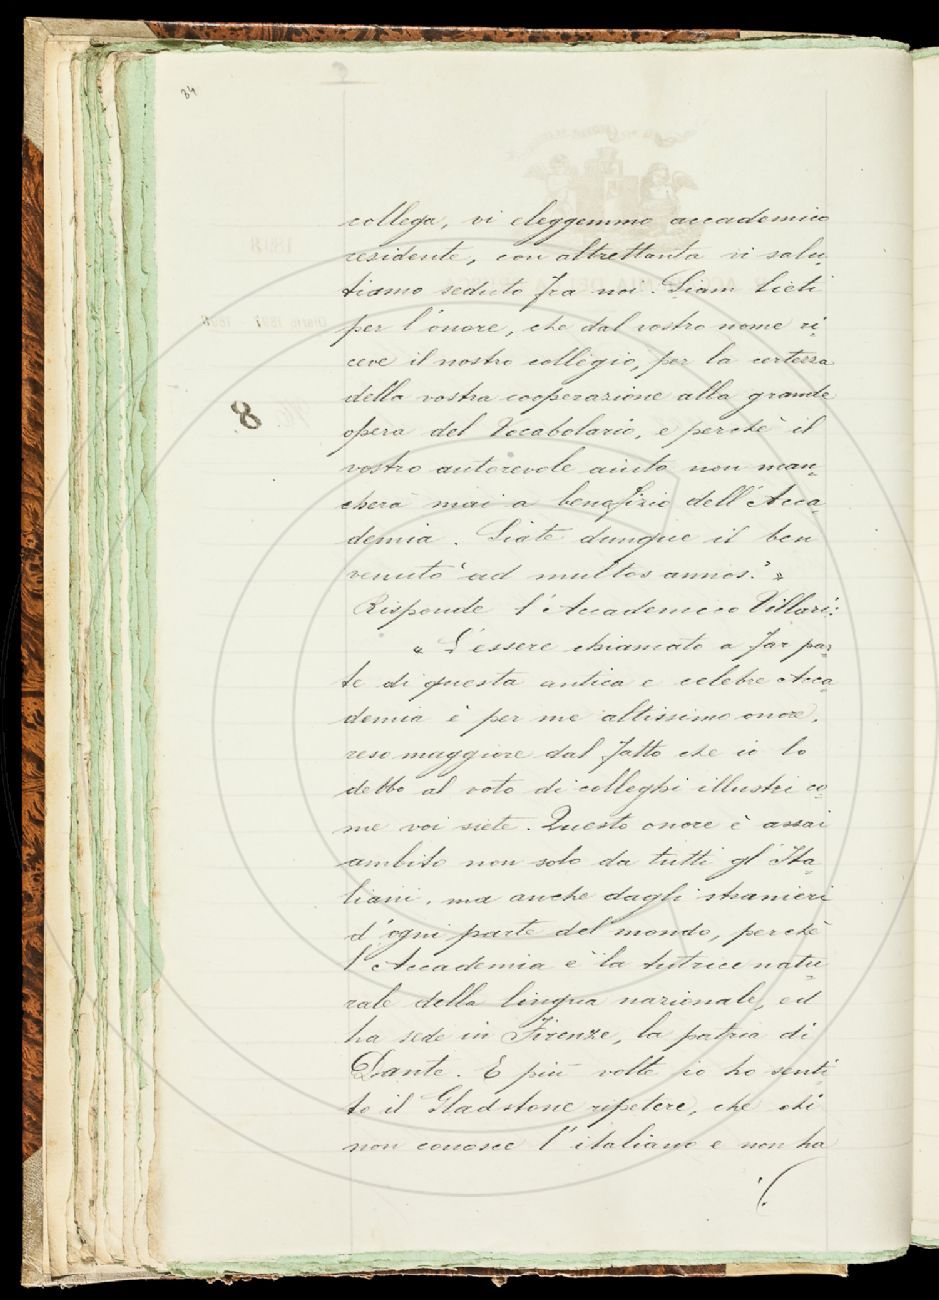 34
collega, vi eleggemmo accademico
residente, con altrettanta vi salu-
tiamo seduto fra noi. Siam lieti
per l'onore, che dal vostro nome ri-
ceve il nostro collegio, per la certezza
della vostra cooperazione alla grande
8.
opera del Vocabolario, e perchè il
vostro autorevole aiuto non man-
cherà mai a benefizio dell'Acca-
demia. Siate dunque il ben
venuto "ad multos annos." »
Risponde l'Accademico Villari:
« L'essere chiamato a far par-
te di questa antica e celebre Acca-
demia è per me altissimo onore,
reso maggiore dal fatto che io lo
debbo al voto di colleghi illustri co-
me voi siete. Questo onore è assai
ambito non solo da tutti gl'Ita-
liani, ma anche dagli stranieri
d'ogni parte del mondo, perchè
l'Accademia è la tutrice natu-
rale della lingua nazionale, ed
ha sede in Firenze, la patria di
Dante. E più volte io ho senti-
to il Gladstone ripetere, che chi
non conosce l'italiano e non ha